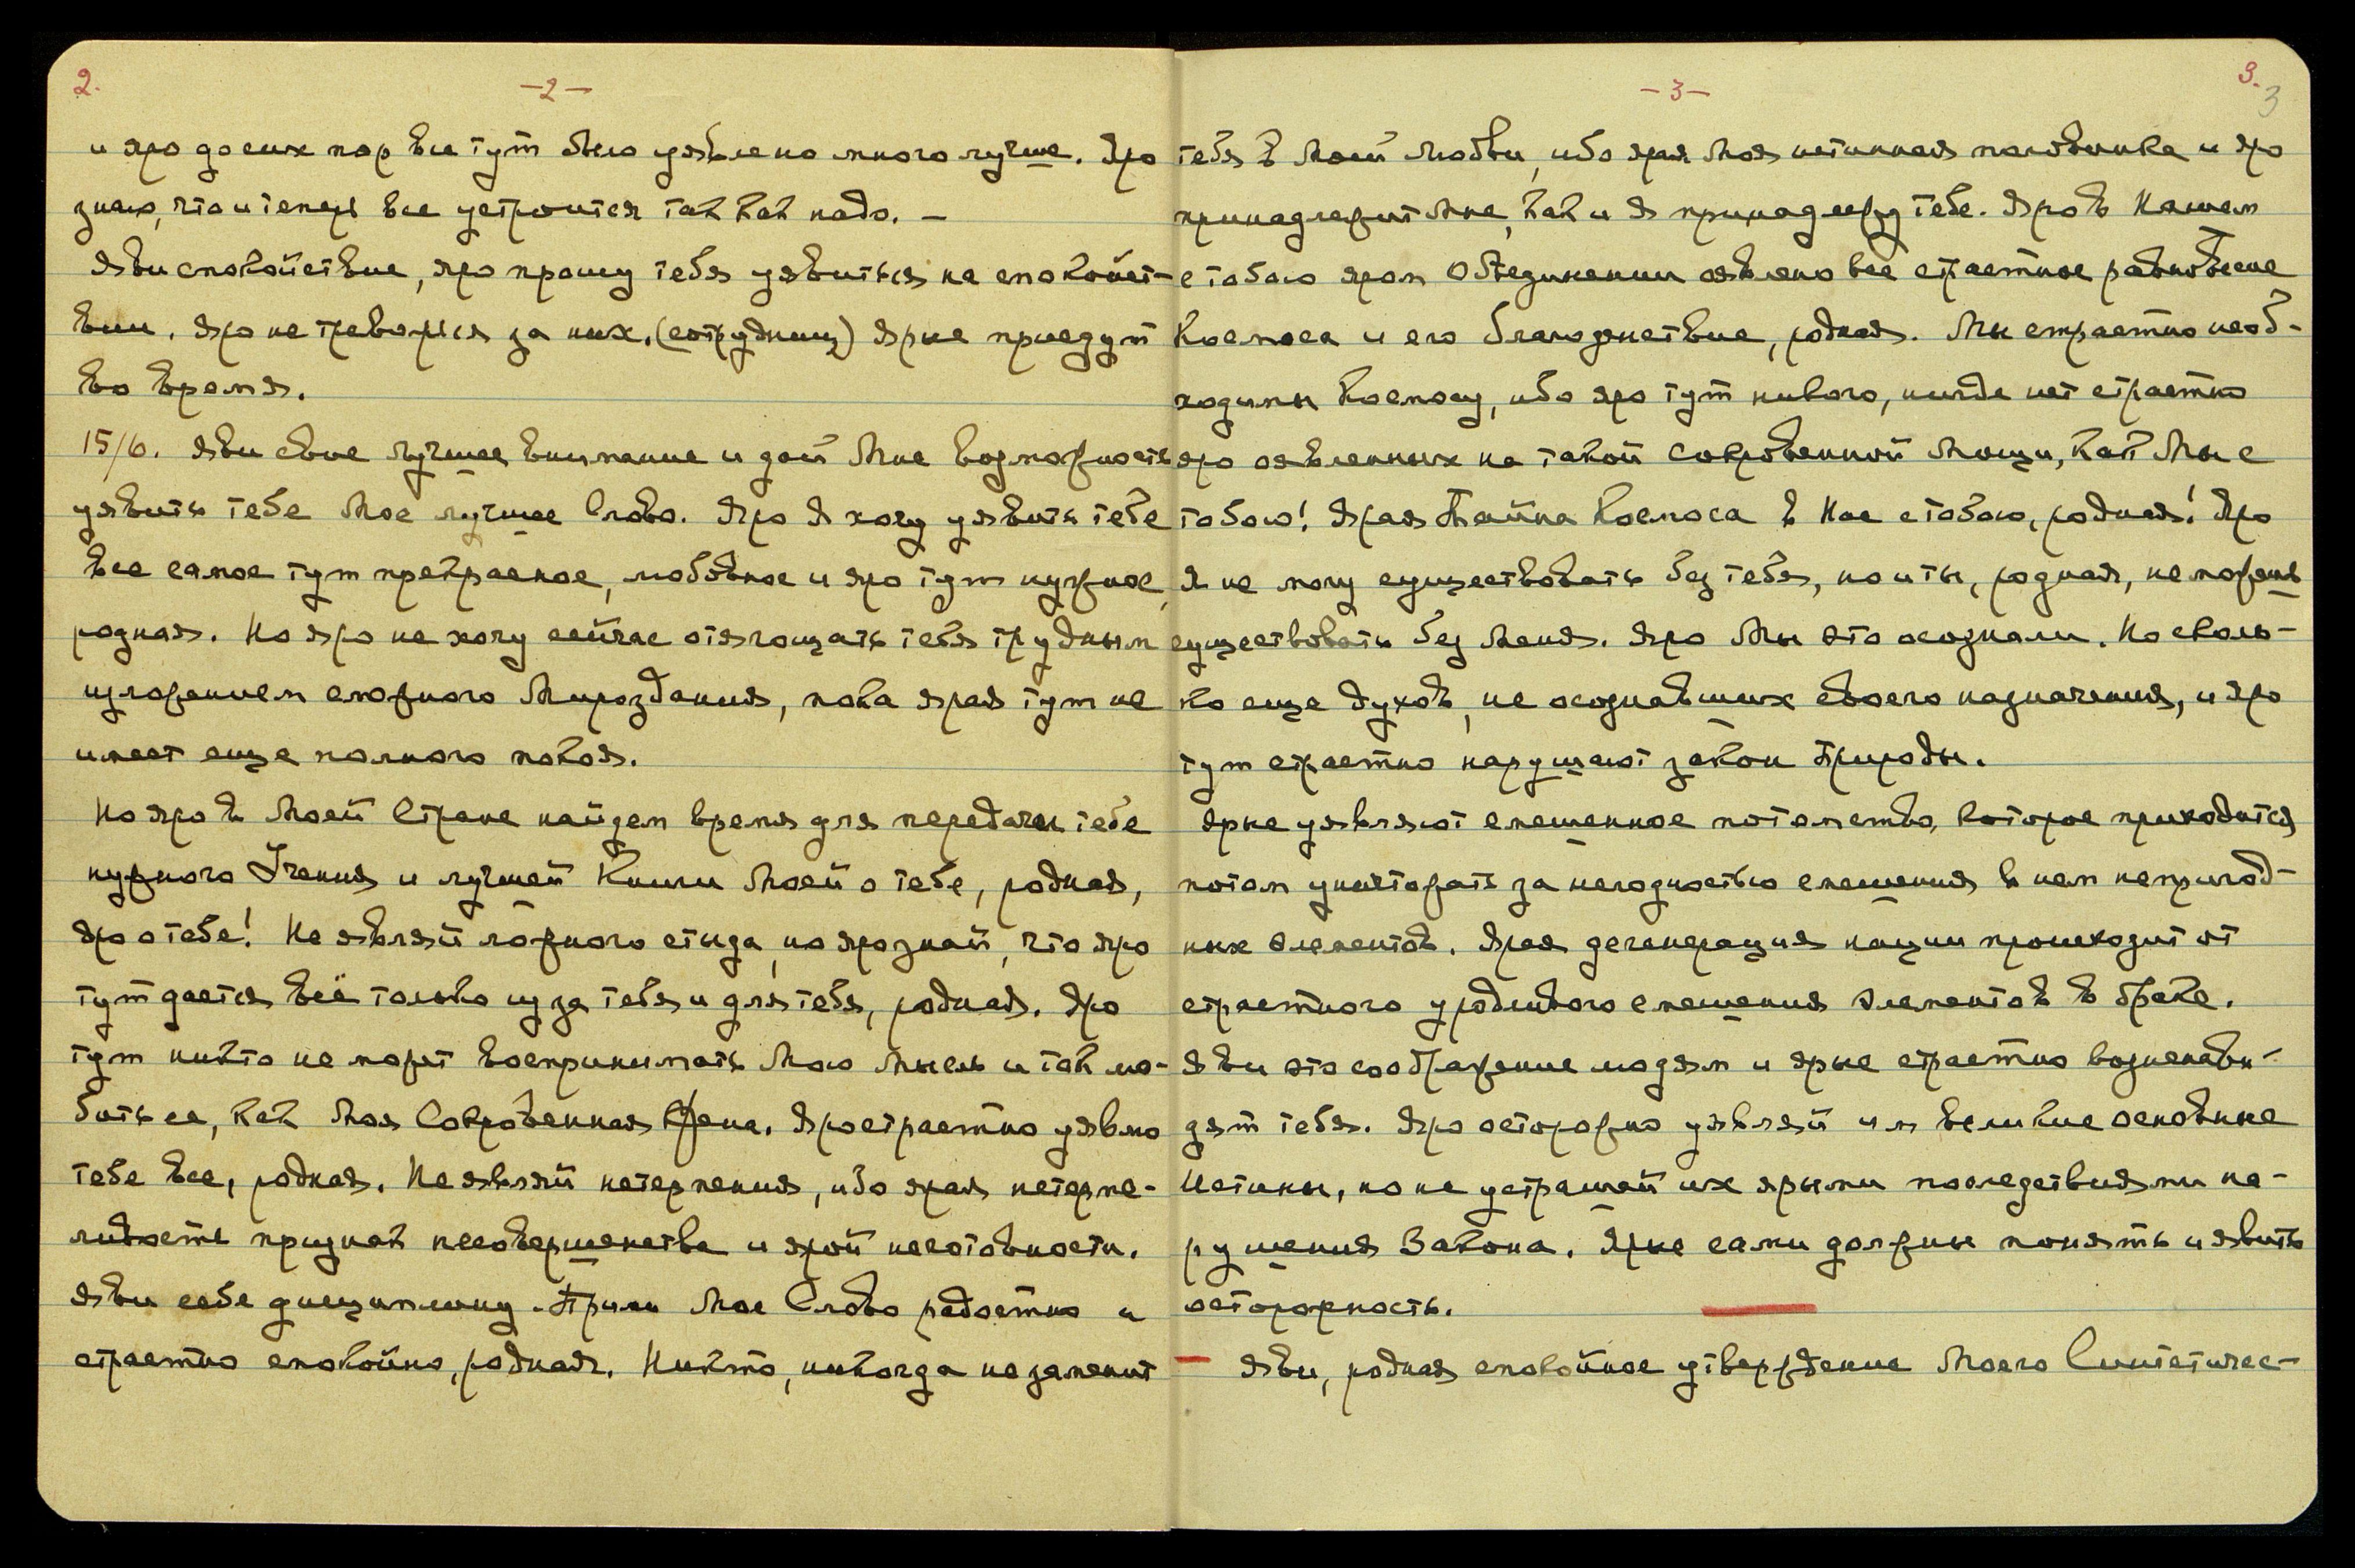 2.
-2-
и яро до сих пор все тут было уявлено много лучше. Яро
знаю, что и теперь все устроится так как надо. –
Яви спокойствие, яро прошу тебя уявиться на спокойст-
вии. Яро не тревожься за них. (сотрудниц) Ярые приедут
во время.
15/6. Яви свое лучшее внимание и дай Мне возможность
уявить тебе Мое лучшее Слово. Яро Я хочу уявить тебе
все самое тут прекрасное, любовное и яро тут нужное,
родная. Но яро не хочу сейчас отягощать тебя трудным
изложением сложного Мироздания, пока ярая тут не
имеет еще полного покоя.
Но яро в Моей Стране найдем время для передачи тебе
нужного Учения и лучшей Книги Моей о тебе, родная,
яро о тебе! Не являй ложного стыда, но яро знай, что яро
тут дается всё только из за тебя и для тебя, родная. Яро
тут никто не может воспринимать Мою Мысль и так лю-
бить ее, как Моя Сокровенная Жена. Яро страстно уявлю
тебе все, родная. Не являй нетерпения, ибо ярая нетерпе-
ливость признак несовершенства и ярой неготовности.
Яви себе дисциплину. Прими Мое Слово радостно и
страстно спокойно, родная. Никто, никогда не заменит
3.
3
-3-
тебя в Моей Любви, ибо ярая Моя истинная половинка и яро
принадлежит Мне, как и Я принадлежу тебе. Яро в Нашем
с тобою яром Объединении оявлено все страстное равновесие
Космоса и его благоденствие, родная. Мы страстно необ-
ходимы Космосу, ибо яро тут никого, нигде нет страстно
яро оявленных на такой Сокровенной Мощи, как Мы с
тобою! Ярая Тайна Космоса в Нас с тобою, родная! Яро
Я не могу существовать без тебя, но и ты, родная, не можешь
существовать без Меня. Яро Мы это осознали. Но сколь-
ко еще духов, не осознавших своего назначения, и яро
тут страстно нарушают закон Природы.
Ярые уявляют смешенное потомство, которое приходится
потом уничтожать за негодностью смешения в нем непригод-
ных элементов. Ярая дегенерация нации происходит от
страстного уродливого смешения элементов в браке.
Яви это соображение людям и ярые страстно возненави-
дят тебя. Яро осторожно уявляй им великие основные
Истины, но не устрашай их ярыми последствиями на-
рушения Закона. Ярые сами должны понять и явить
осторожность.
– Яви, родная спокойное утверждение Моего Синтетичес-